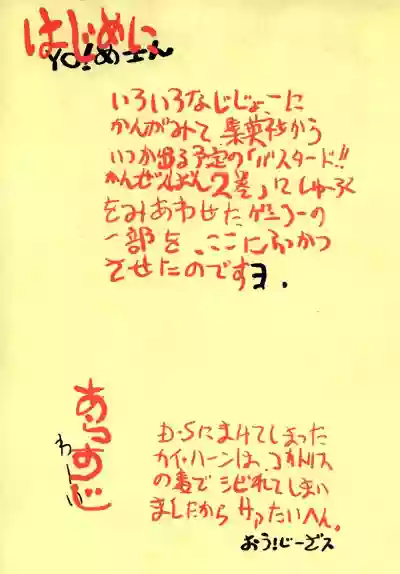 はじめに
YO!めエん
いろいろなじじょーに
かんがみて 集英社から
いつか出る予定の「バスタード!!
かんぜんばん2巻」にしゅーろく
をみあわせたゲンコーの
一部を、ここにふっかつ
させたのですヨ.
あらすじ
わんい
D・Sにまけてしまった
カイ・ハーンは、コカトリス
の毒でシビれてしまい
ましたからサアたいへん。
おう!じーざス